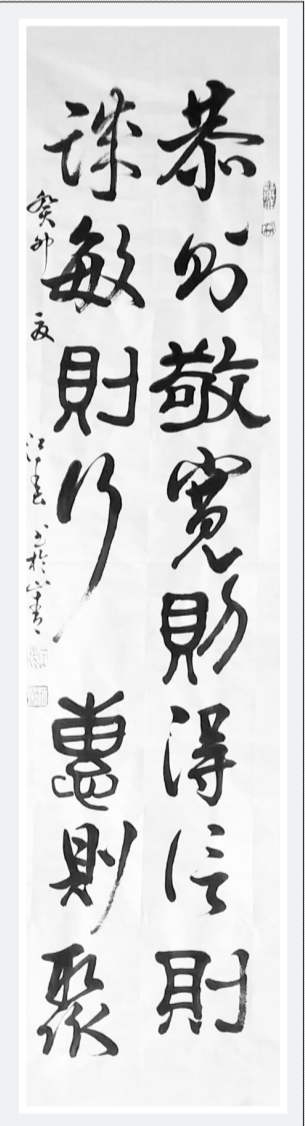 恭則敬寬則得信則
敏則行惠則聚
癸卯夏 江春書於